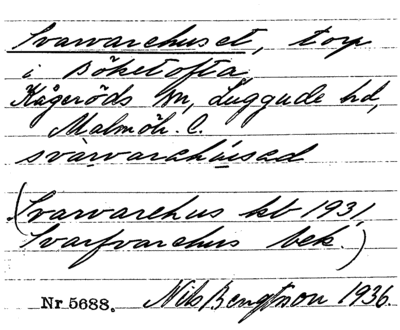 Svarvarehuset, torp
i Böketofta,
Kågeröds sn, Luggude hd,
Malmöh. l.
svàrvarehúsed
(Svarvarehus kb 1931,
Svarfvarehus bek.)
Nr 5688. Nils Bengtsson 1936.